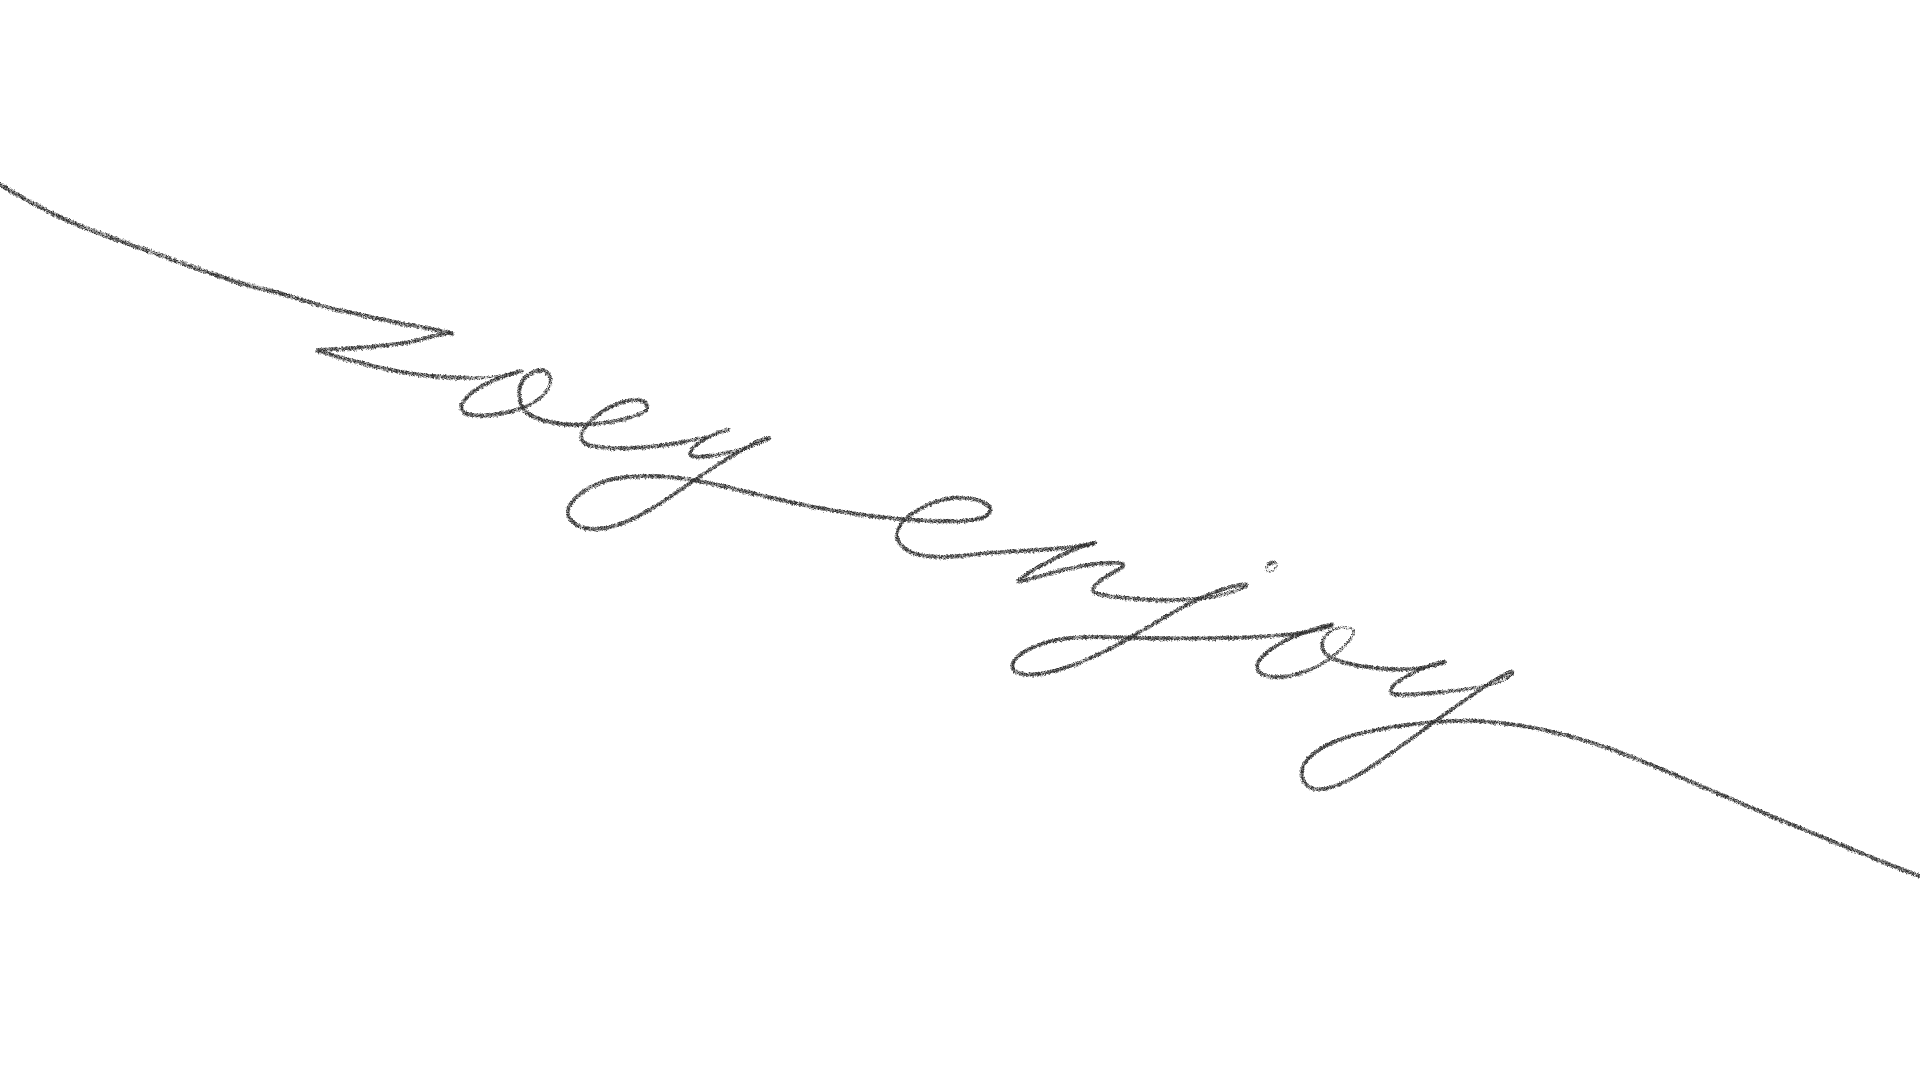 zoey enjoy